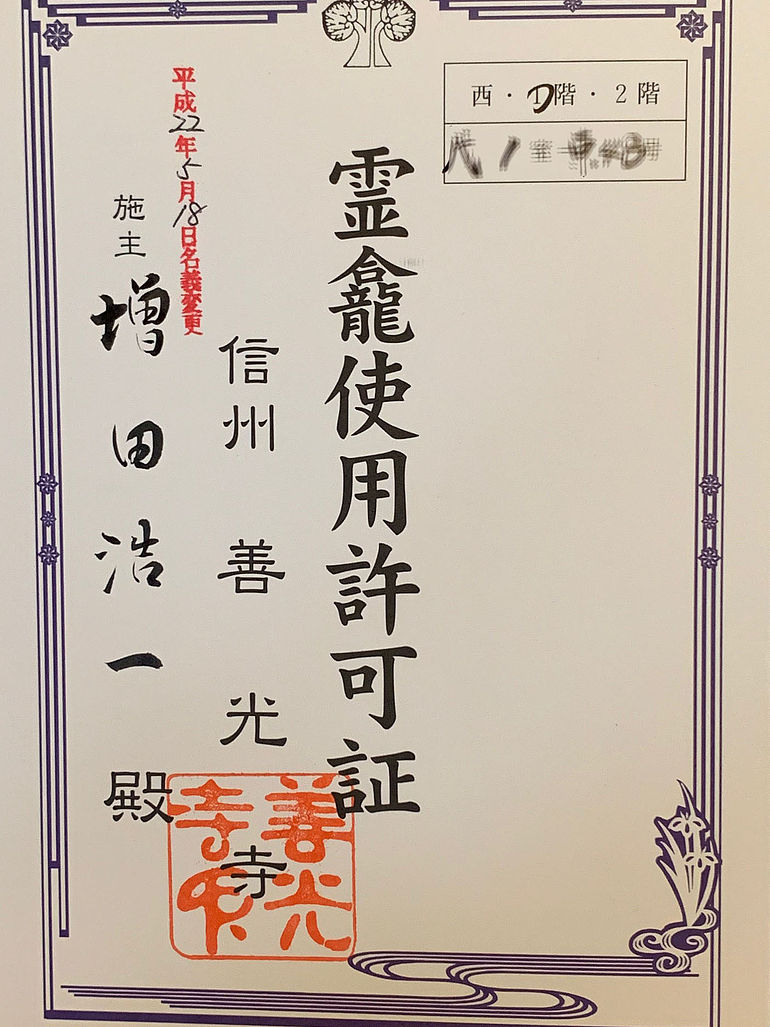 西・1階・2階
霊龕使用許可証
信州善光寺
善光寺印
平成22年5月18日名義変更
施主 増田浩一殿